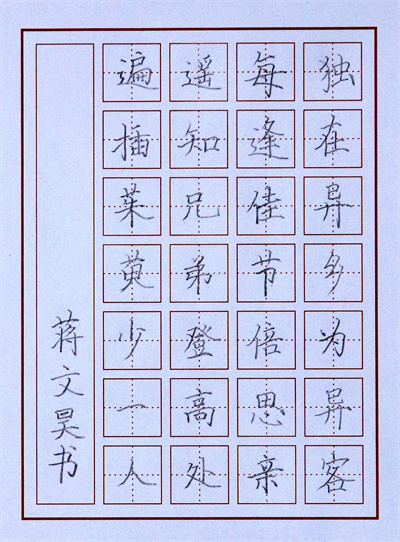 独在异乡为异客
每逢佳节倍思亲
遥知兄弟登高处
遍插茱萸少一人
蒋文昊书